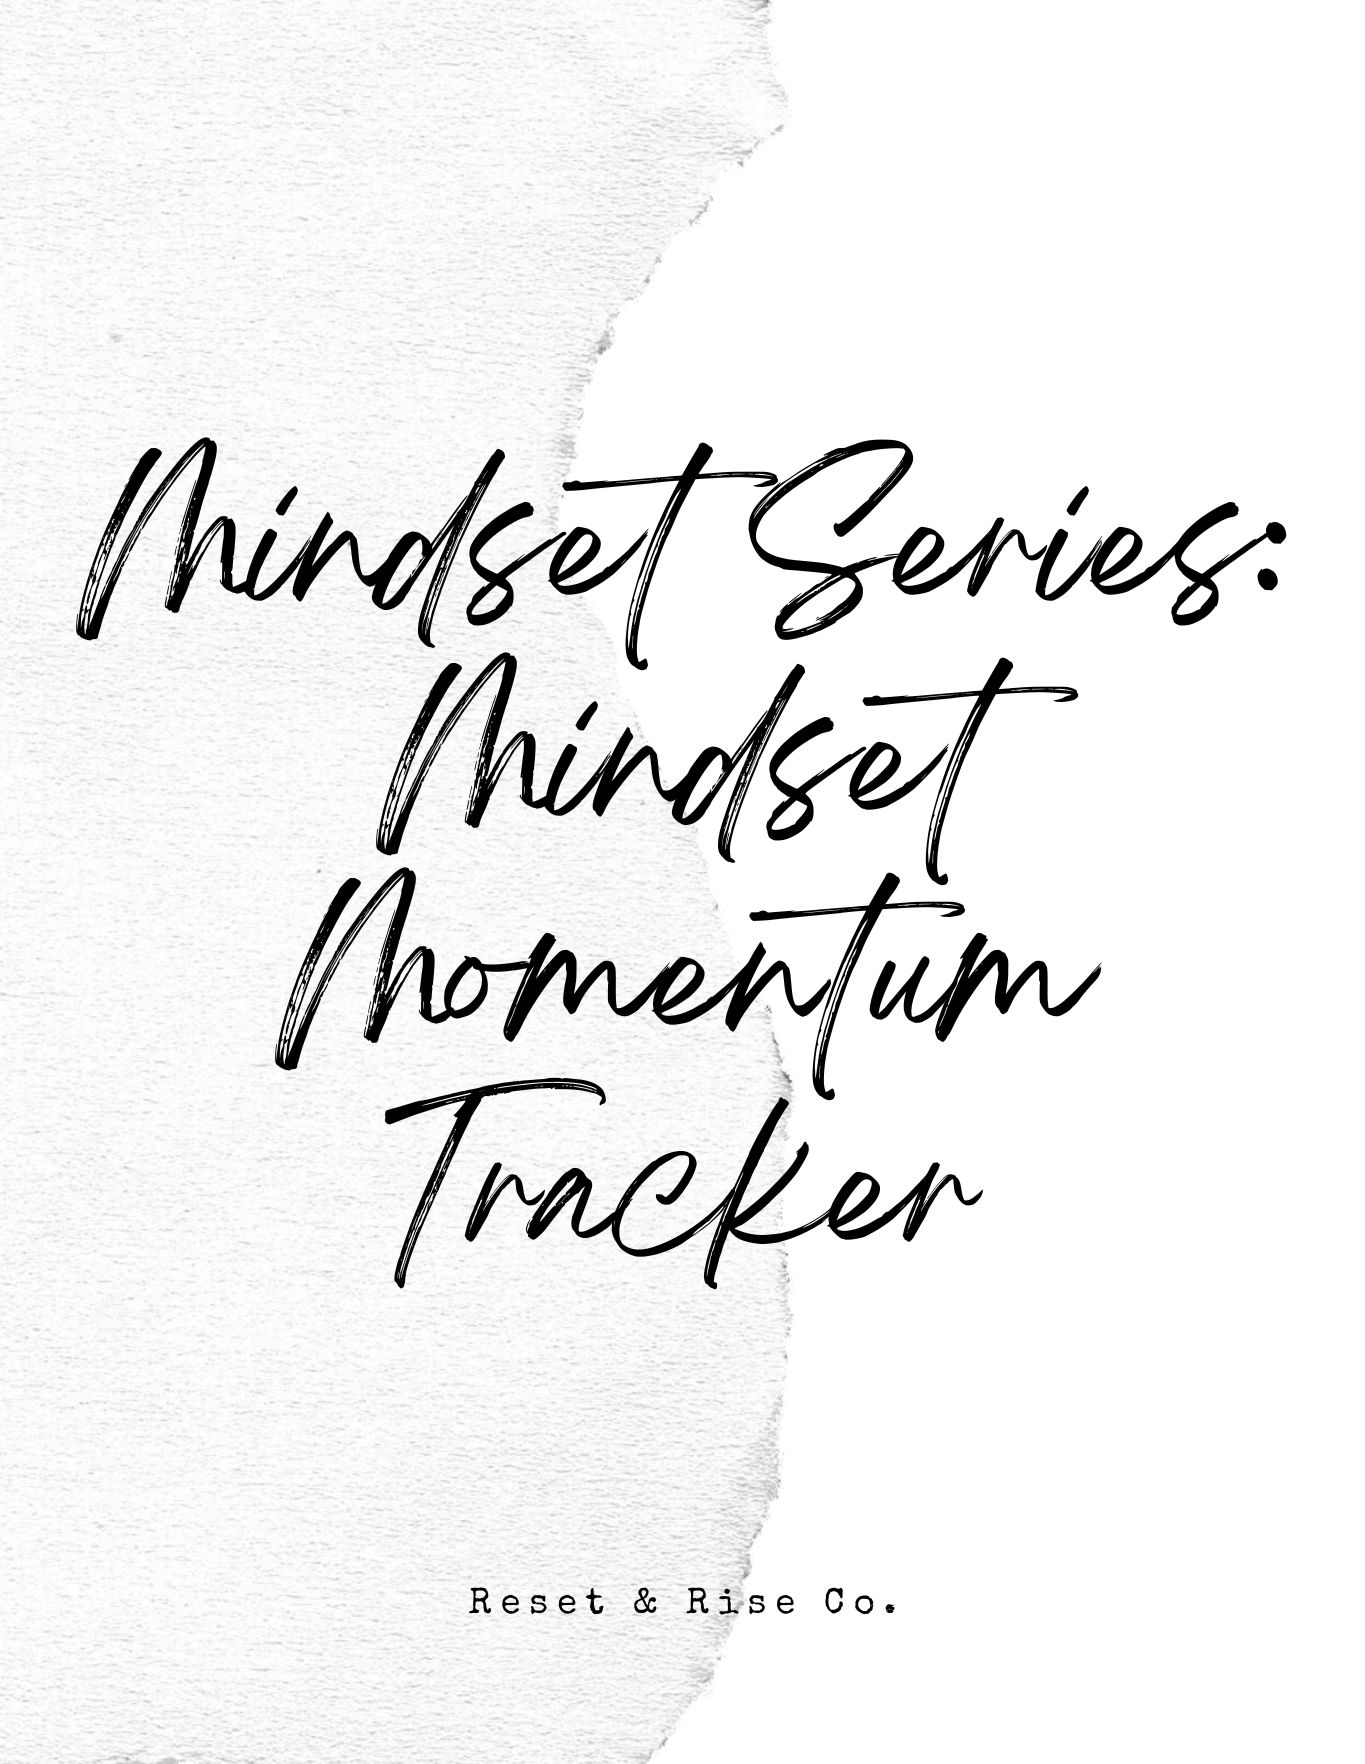 Mindset Series:
Mindset
Momentum
Tracker
Reset & Rise Co.